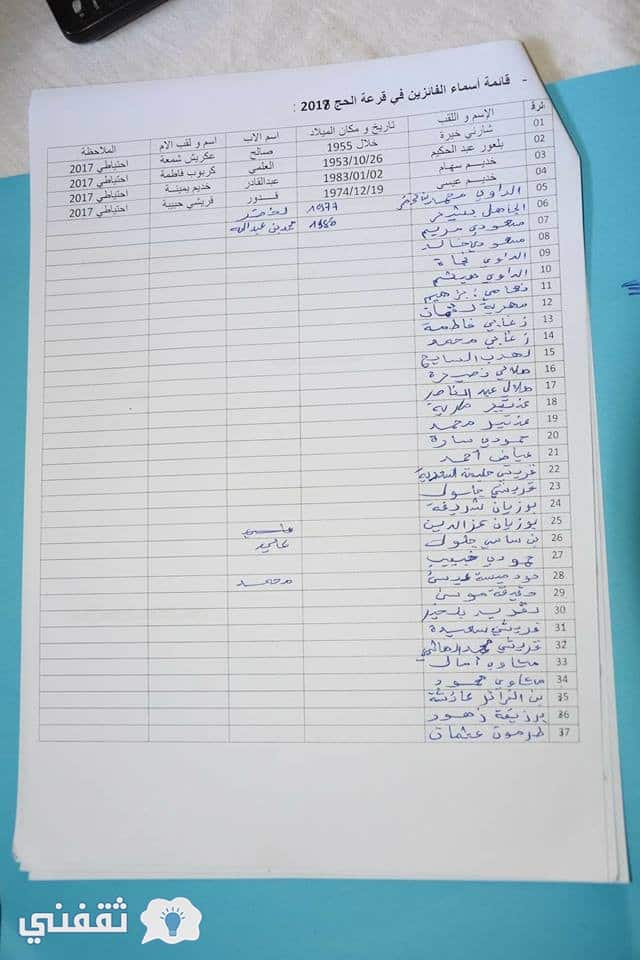 - قائمة أسماء الفائزين في قرعة الحج 2018 :
الإسم و اللقب تاريخ و مكان الميلاد اسم الاب اسم و لقب الام الملاحظة
01 شارني خيرة خلال 1955 صالح عكريش شمعة احتياطي 2017
02 بلعور عبد الحكيم 1953/10/26 العلمي كربوب فاطمة احتياطي 2017
03 خديم سهام 1983/01/02 عبدالقادر خديم يمينة احتياطي 2017
04 خديم عيسى 1974/12/19 قدور قريشي حبيبة احتياطي 2017
05 الداوي 1977 لخضر
06 الجاهل بشير 1980 محمد بن عبد الله
07 مسعودي مريم
08 مسعودي خالد
09 الداوي نجاة
10 الداوي هيثم
11 نعامي ابراهيم
12 مهرية
13 زغابي فاطمة
14 زغابي محمد
15 لهدب السايح
16 هلالي نصيرة
17 هلال عبد الناصر
18
19 محمد
20 حمودي سارة
21 عياض أحمد
22 قريشي حليمة السعدية
23 قريشي جلول
24 بوزيان شريفة
25 بوزيان عز الدين
26 بن ساسي جلول
27 حمودي حبيب
28 عيسى محمد
29 موسى
30 بلخير
31 قريشي سعيدة
32 قريشي محمد العالي
33 مشاوي أمال
34 مشاوي محمود
35 بن الزائر عائشة
36 بوزيقة زهور
37 طرمون عثمان
ثقفني